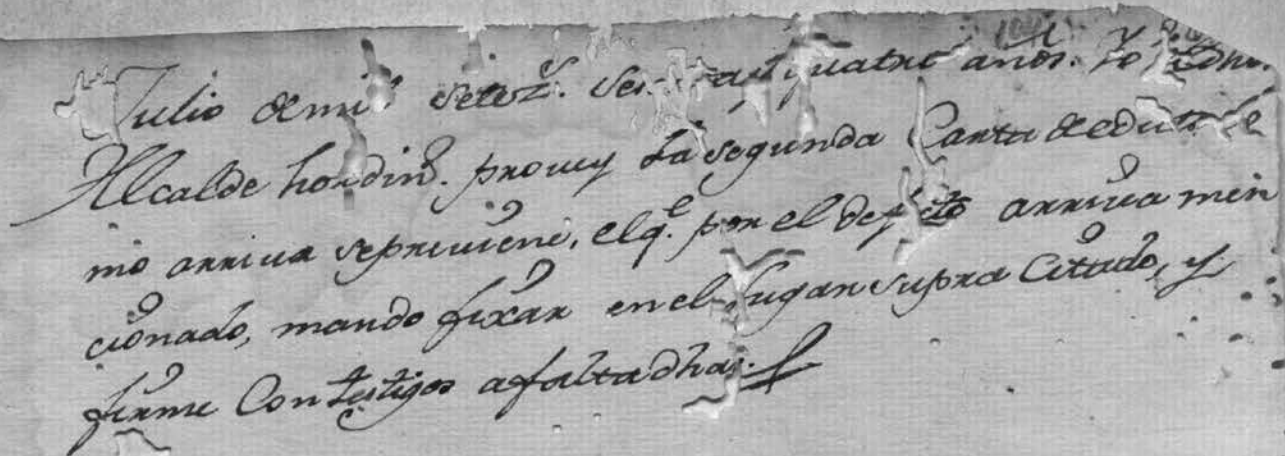 Julio de mil setecs. sesenta y quatro años. Yo dho.
Alcalde hordino. provey la segunda Carta de edicto
mo arriva se previene, el qe. por el defecto arriva men
cionado, mando fixar en el Lugar supra Citado, y
firme Con testigos a falta dha.